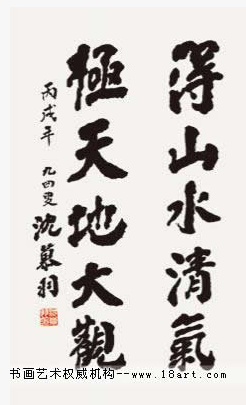 得山水清氣
極天地大觀
丙戌年 九四叟 沈慕羽
书画艺术权威机构--www.18art.com